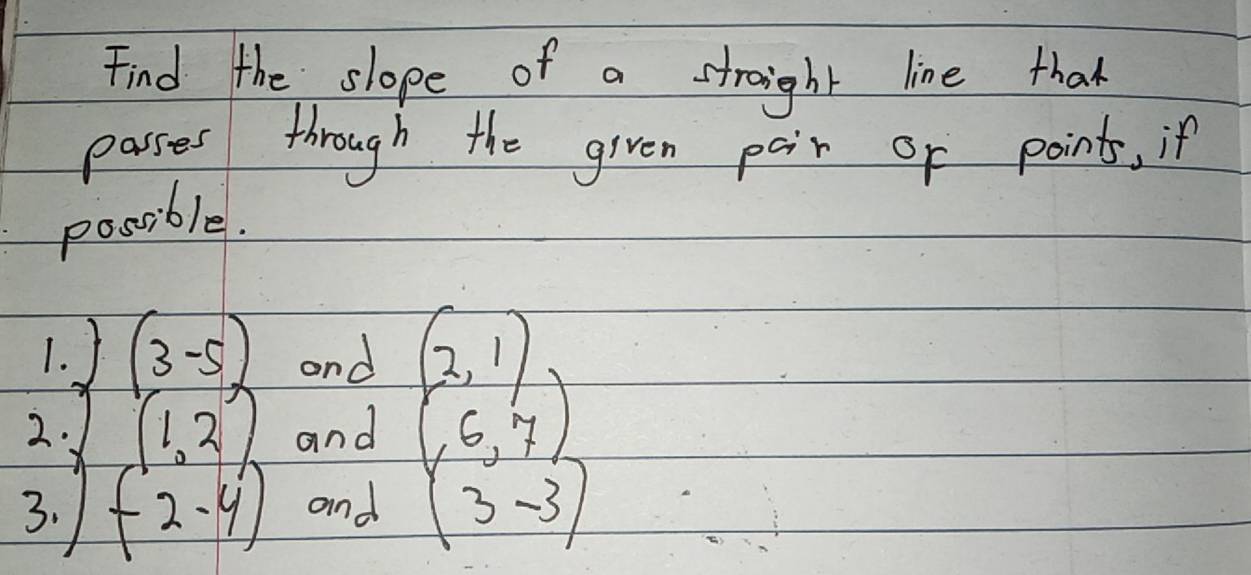 Find the slope of a straight line that
passes through the given pair of points, if
possible.
1.) (3-5) and (2,1)
2.) (1,2) and (6,7)
3.) (-2-4) and (3-3)